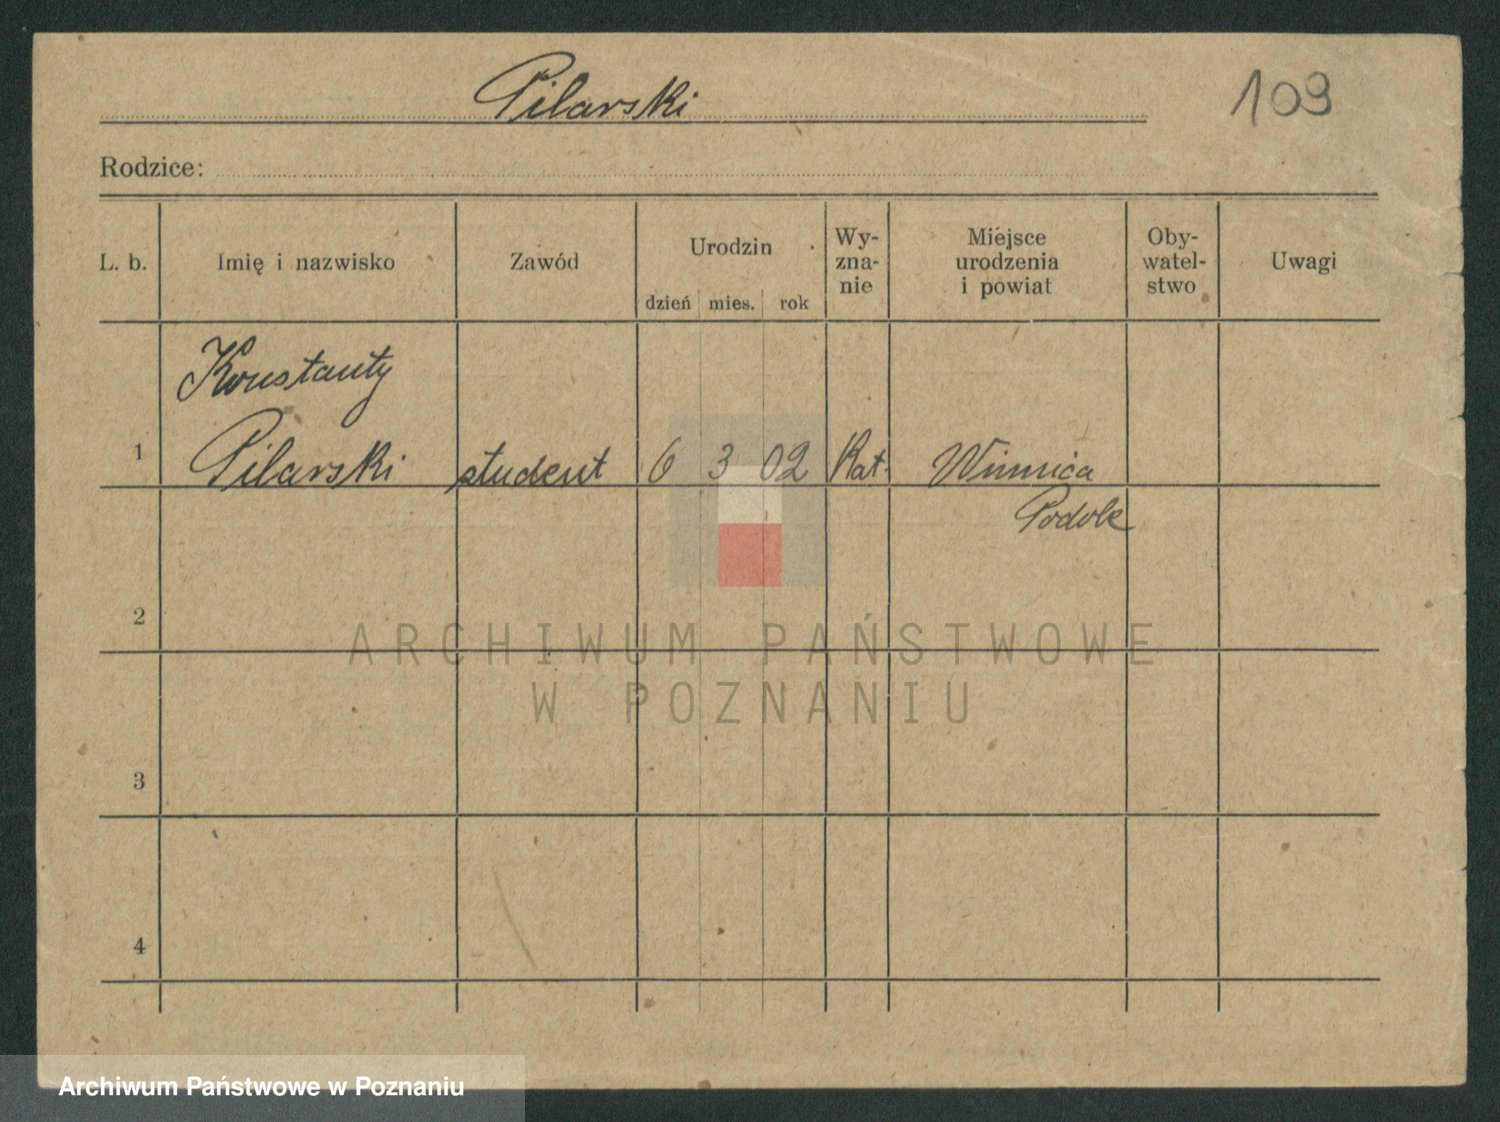 Pilarski
109
Rodzice:
L. b.
Imię i nazwisko
Zawód
Urodzin
dzień mies. rok
Wy-
zna-
nie
Miejsce
urodzenia
i powiat
Oby-
watel-
stwo
Uwagi
Konstanty
1 Pilarski student 6 3 02 Kat. Winnica
Podole
2
3
4
ARCHIWUM PAŃSTWOWE
W POZNANIU
Archiwum Państwowe w Poznaniu